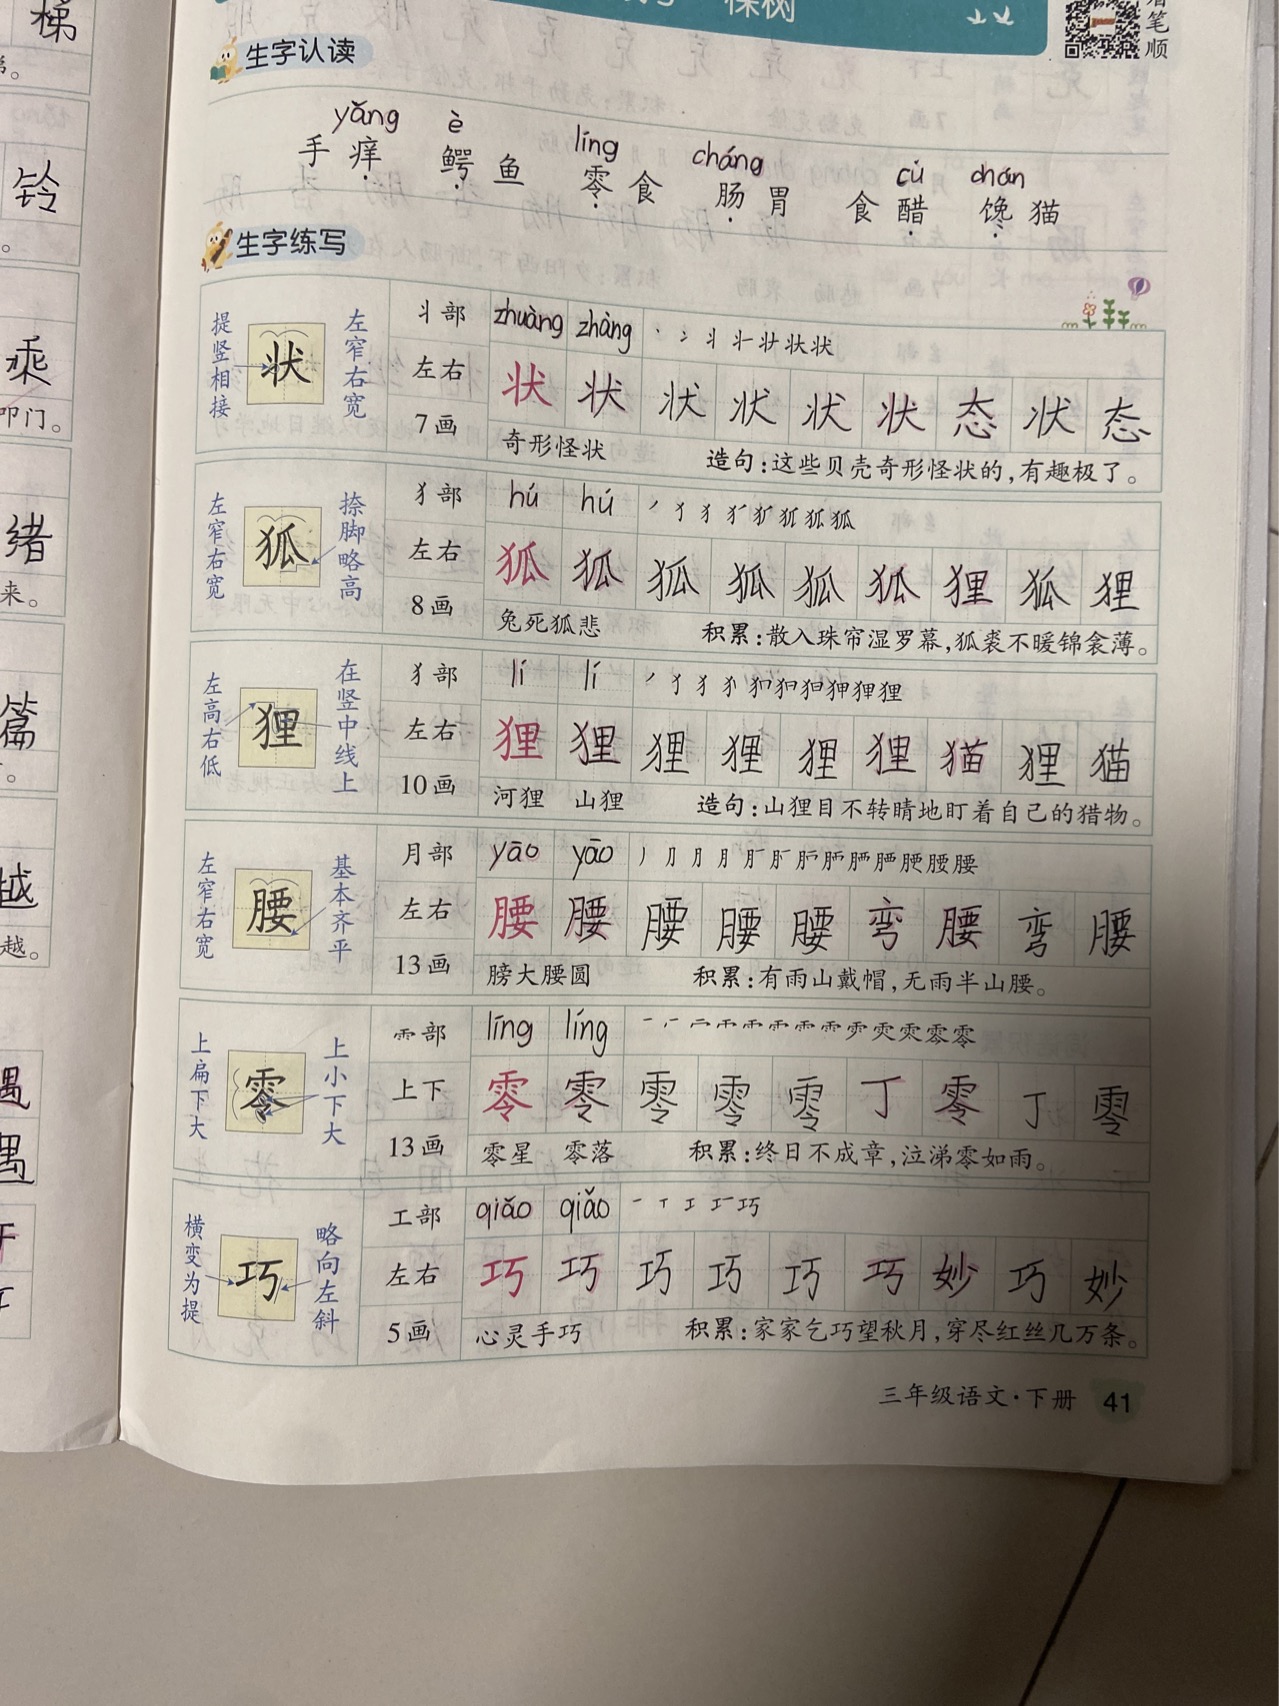 梯
铃
乖
叩门。
绪
来。
篇
越
越。
遇
遇
棵树
笔
顺
生字认读
yǎng è líng cháng cù chán
手痒 鳄鱼 零食 肠胃 食醋 馋猫
生字练写
提竖相接 状 左窄右宽
丬部 zhuàng zhàng
左右 状 状 状 状 状 状 态 状 态
7画 奇形怪状 造句:这些贝壳奇形怪状的,有趣极了。
左窄右宽 狐 捺脚略高
犭部 hú hú
左右 狐 狐 狐 狐 狐 狐 狸 狐 狸
8画 兔死狐悲 积累:散入珠帘湿罗幕,狐裘不暖锦衾薄。
左高右低 狸 在竖中线上
犭部 lí lí
左右 狸 狸 狸 狸 狸 狸 猫 狸 猫
10画 河狸 山狸 造句:山狸目不转睛地盯着自己的猎物。
左窄右宽 腰 基本齐平
月部 yāo yāo
左右 腰 腰 腰 腰 腰 弯 腰 弯 腰
13画 膀大腰圆 积累:有雨山戴帽,无雨半山腰。
上扁下大 零 上小下大
⻗部 líng líng
上下 零 零 零 零 零 丁 零 丁 零
13画 零星 零落 积累:终日不成章,泣涕零如雨。
横变为提 巧 略向左斜
工部 qiǎo qiǎo
左右 巧 巧 巧 巧 巧 巧 妙 巧 妙
5画 心灵手巧 积累:家家乞巧望秋月,穿尽红丝几万条。
三年级语文·下册 41